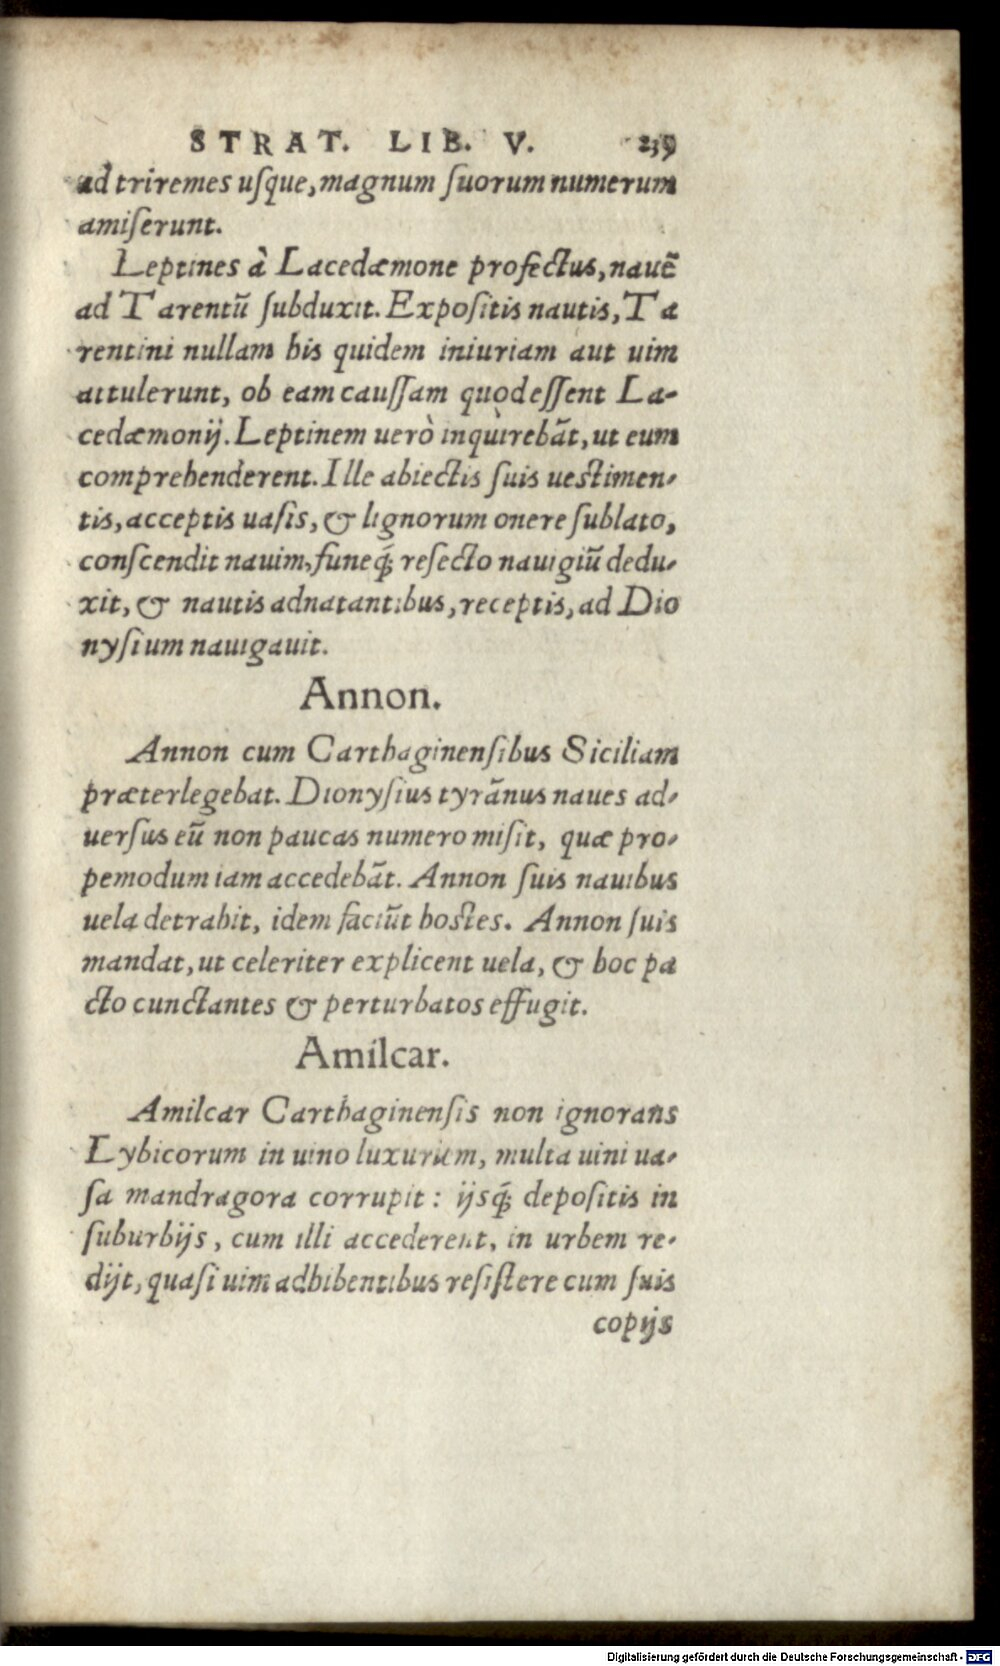 STRAT. LIB. V. 239
ad triremes uſque, magnum ſuorum numerum
amiſerunt.
Leptines à Lacedæmone profectus, nauẽ
ad Tarentũ ſubduxit. Expoſitis nautis, Ta
rentini nullam his quidem iniuriam aut uim
attulerunt, ob eam cauſſam quòd eſſent La-
cedæmonij. Leptinem uerò inquirebãt, ut eum
comprehenderent. Ille abiectis ſuis ueſtimen-
tis, acceptis uaſis, & lignorum onere ſublato,
conſcendit nauim, funeq́; reſecto nauigiũ dedu-
xit, & nautis adnatantibus, receptis, ad Dio
nyſium nauigauit.
Annon.
Annon cum Carthaginenſibus Siciliam
præterlegebat. Dionyſius tyrãnus naues ad-
uerſus eũ non paucas numero miſit, quæ pro-
pemodum iam accedebãt. Annon ſuis nauibus
uela detrahit, idem faciũt hoſtes. Annon ſuis
mandat, ut celeriter explicent uela, & hoc pa
cto cunctantes & perturbatos effugit.
Amilcar.
Amilcar Carthaginenſis non ignorans
Lybicorum in uino luxurium, multa uini ua-
ſa mandragora corrupit: ijsq́; depoſitis in
ſuburbijs, cum illi accederent, in urbem re-
dijt, quaſi uim adhibentibus reſiſtere cum ſuis
copijs
Digitalisierung gefördert durch die Deutsche Forschungsgemeinschaft - DFG